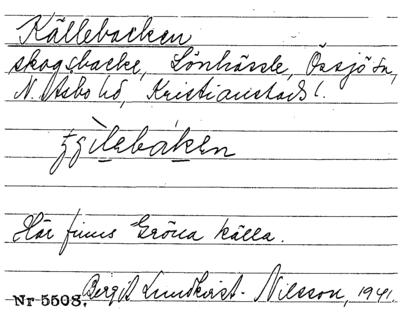 Källebacken
skogsbacke, Lönhässle, Össjö sn,
N. Åsbo hd, Kristianstads l.
Här finns Gröna källa.
Nr 5508. Bergit Lundkvist-Nilsson, 1941.